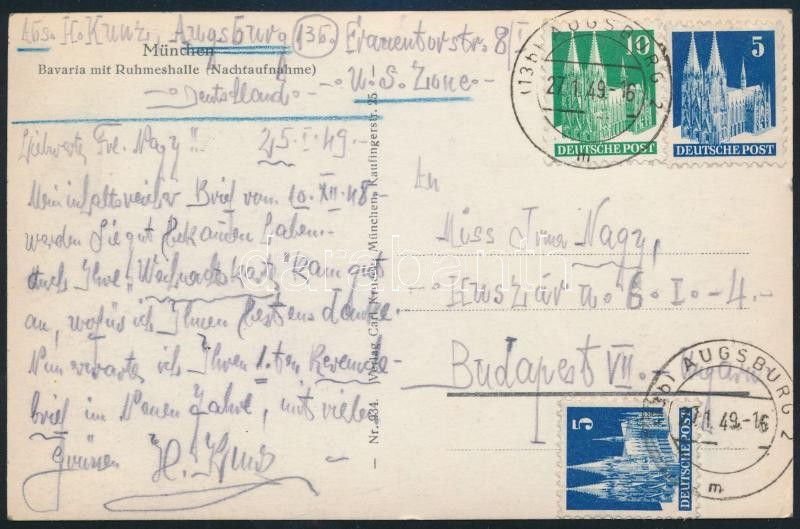 Abs. H. Kunz, Augsburg (13b) Frauentorstr. 8/I
München
Bavaria mit Ruhmeshalle (Nachtaufnahme)
-o- U.S. Zone -o-
-o- Deutschland -o-
Frl. Nagy! 25.I.49.-
Mein inhaltsreicher Brief vom 10.XII.48-
werden Sie gut bekommen haben.-
auch Ihre "Weihnachtskarte" kam gut
an, wofür ich Ihnen bestens danke.
Nun erwarte ich Ihren
brief im Neuen Jahre, mit vielen
Grüssen H. Kunz
Nr. 934. Verlag Carl München, Kaufingerstr. 25
An
Miss Irma Nagy,
Huszár u. 6. I. - 4.-
Budapest VII.- Ungarn
10
DEUTSCHE POST
5
DEUTSCHE POST
(13b) AUGSBURG 2
27.1.49.-16
m
5
DEUTSCHE POST
(13b) AUGSBURG 2
27.1.49.-16
m
darabanth